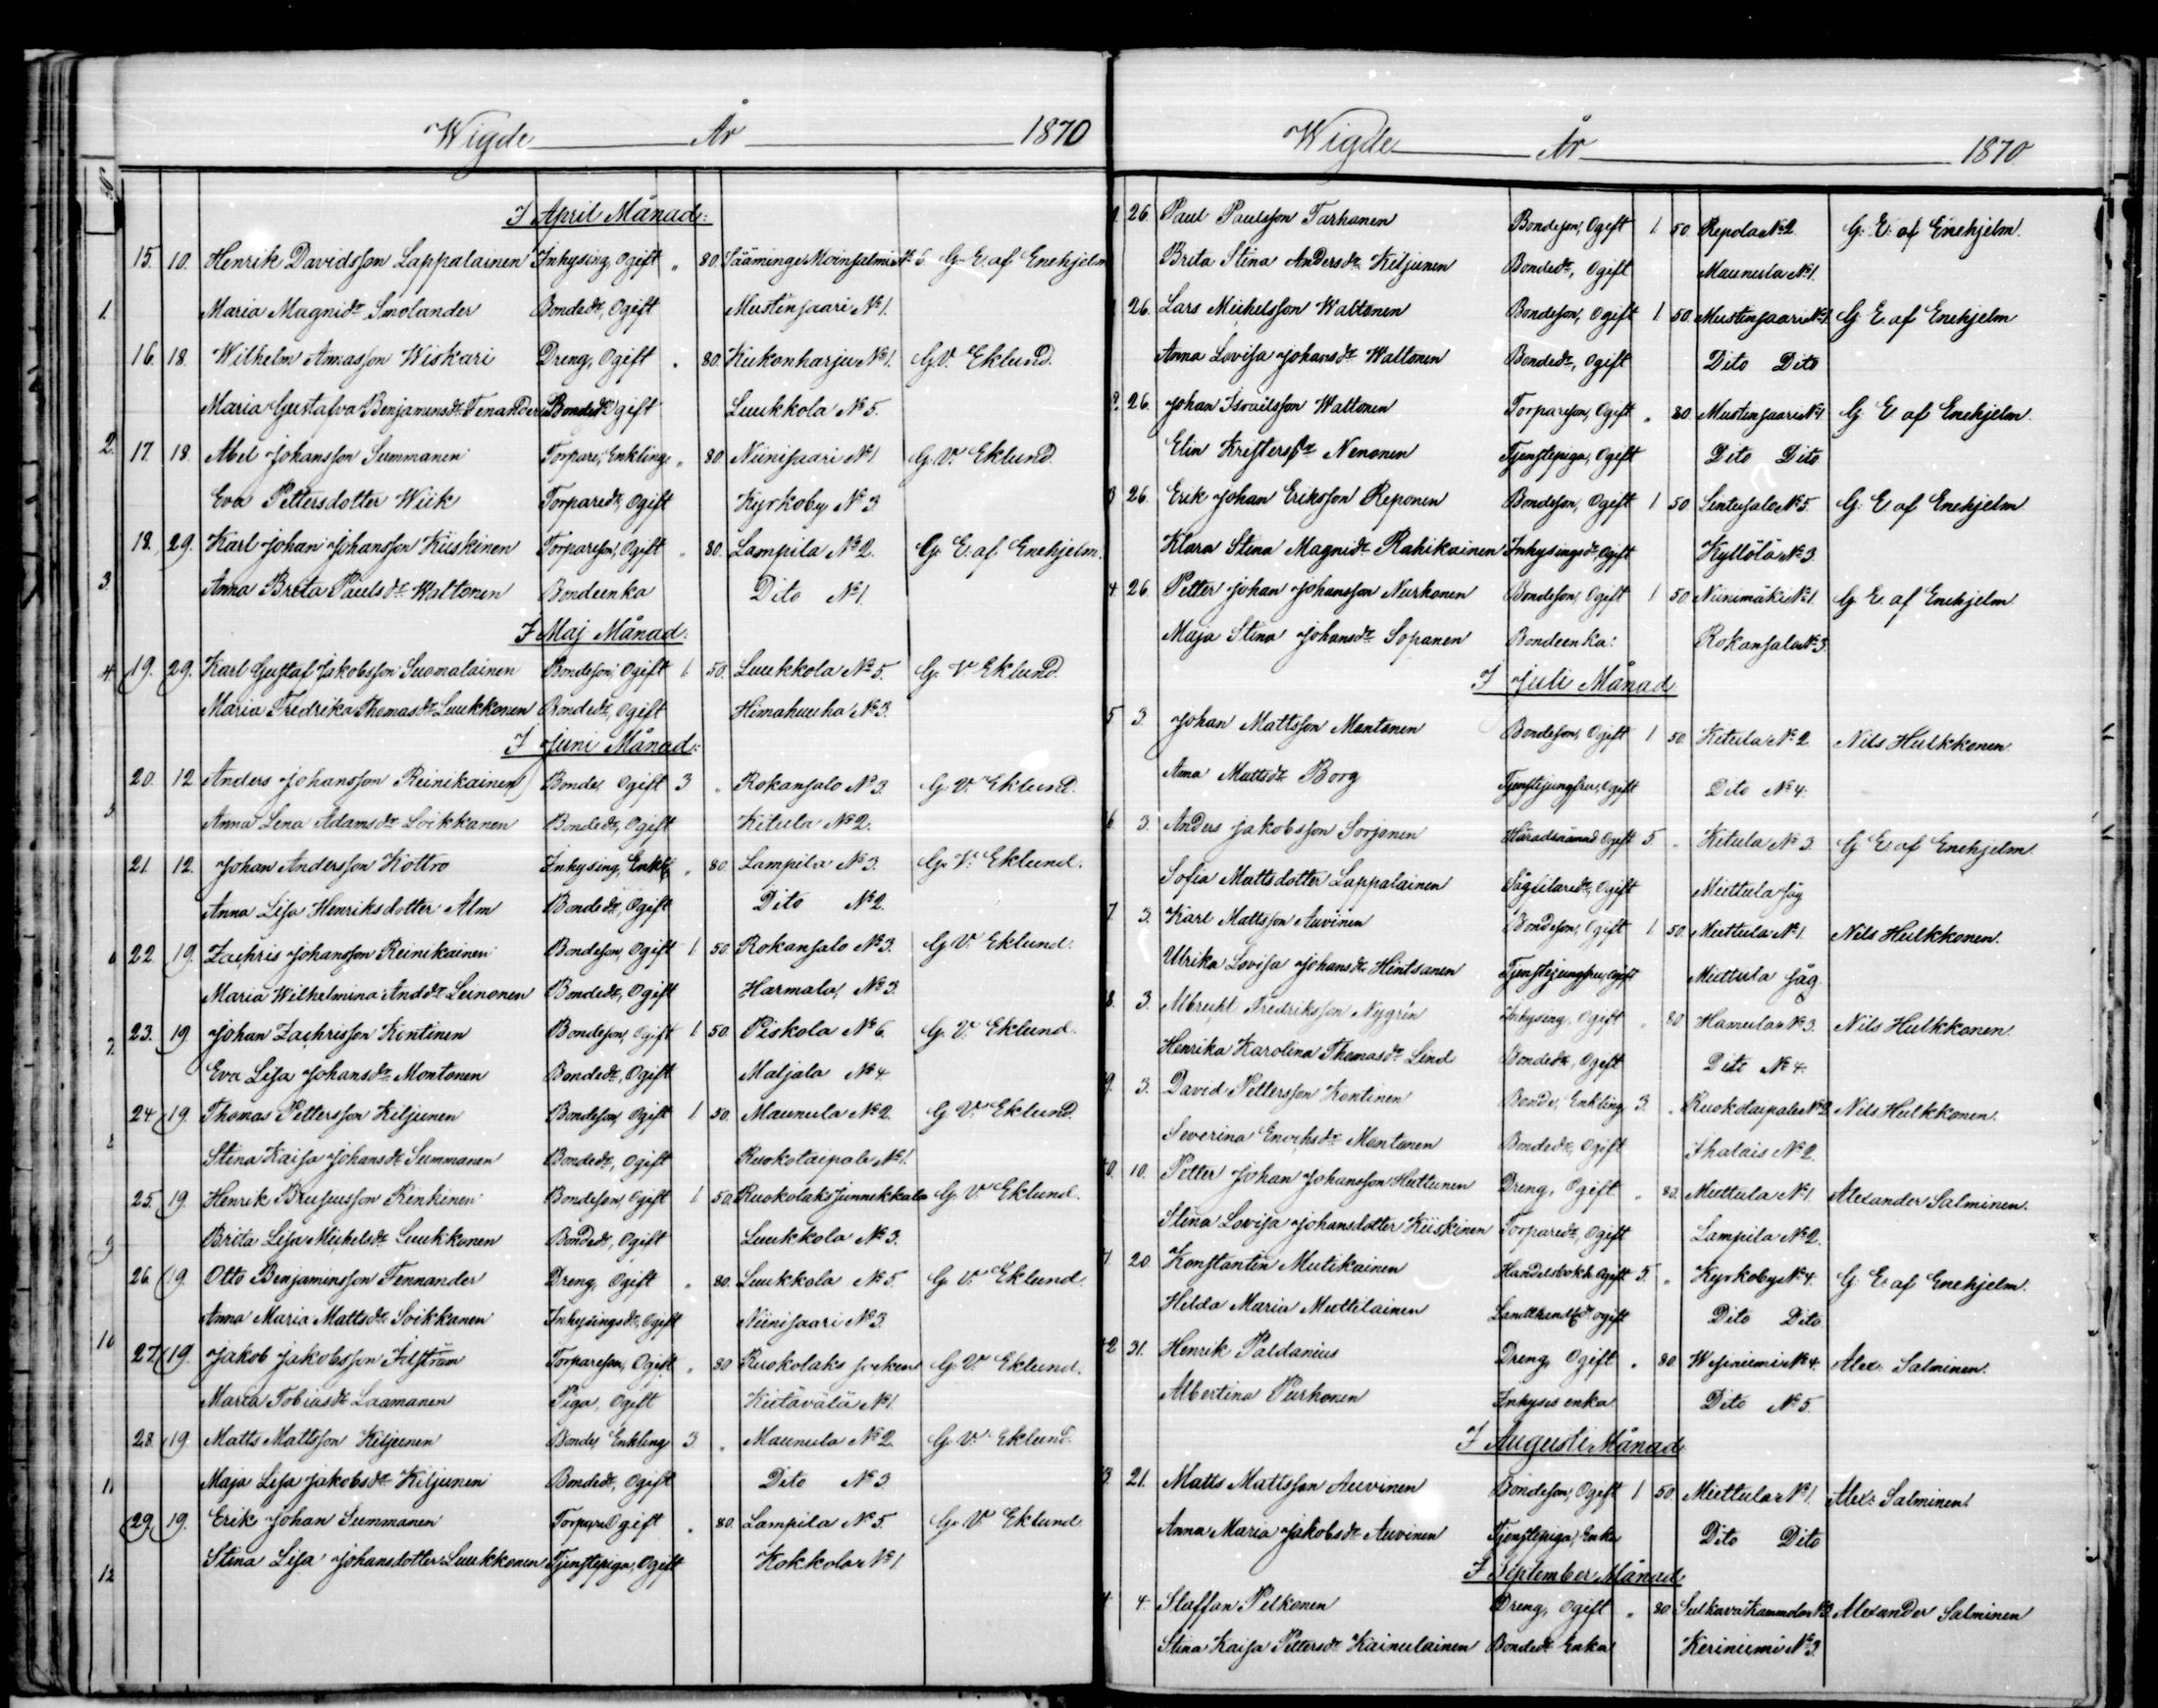 Wigde År 1870
I April Månad:
15. 10. Henrik Davidsson Lappalainen Inhysing, Ogift „ 80. Sääminge Moinsalmi № 6. G. E. af Enehjelm
Maria Magnidr Smolander Bondedr, Ogift Mustinsaari № 1.
16. 18. Wilhelm Annasson Wiskari Dreng, Ogift „ 80. Kukonharju № 1. G. V. Eklund.
Maria Gustafva Benjaminsdr Tenander Bondedr Ogift Luukkola № 5.
17. 18. Abel Johansson Summanen Torpare, Enkling „ 80 Niinisaari № 1 G. V. Eklund.
Eva Pettersdotter Wiik Torparedr, Ogift Kyrkoby № 3.
18. 29. Karl Johan Johansson Kiiskinen Torpareson, Ogift „ 80. Lampila № 2. G. E. af Enehjelm.
Anna Brita Paulsdr Waltonen Bondeenka Dito № 1.
I Maj Månad:
19. 29. Karl Gustaf Jakobsson Suomalainen Bondeson, Ogift 1. 50. Luukkola № 5. G. V. Eklund.
Maria Fredrika Thomasdr Luukkonen Bondedr, Ogift Himahuuha № 3.
I Juni Månad:
20. 12. Anders Johansson Reinikainen Bonde, Ogift 3 „ Rokansalo № 3. G. V. Eklund.
Anna Lena Adamsdr Loikkanen Bondedr, Ogift Kitula № 2.
21. 12. Johan Andersson Kottro Inhysing, Enkl. „ 80. Lampila № 3. G. V. Eklund.
Anna Lisa Henriksdotter Alm Bondedr, Ogift Dito № 2.
22. 19. Zachris Johansson Reinikainen Bondeson, Ogift 1. 50. Rokansalo № 3. G. V. Eklund.
Maria Wilhelmina Anddr Leinonen Bondedr, Ogift Harmala, № 3.
23. 19. Johan Zachrisson Kontinen Bondeson, Ogift 1 50. Piskola № 6. G. V. Eklund.
Eva Lisa Johansdr Montonen Bondedr, Ogift Maljala № 4.
24. 19. Thomas Pettersson Kiljunen Bondeson, Ogift 1 50. Maunula № 2. G. V. Eklund
Stina Kaisa Johansdr Summanen Bondedr, Ogift Ruokotaipale № 1.
25. 19. Henrik Brusiusson Kinkinen Bondeson, Ogift 1 50. Ruokolaks Junnekkala G. V. Eklund.
Brita Lisa Mickelsdr Luukkonen Bondedr, Ogift Luukkola № 3.
26. 19. Otto Benjaminsson Tennander Dreng, Ogift „ 80. Luukkola № 5. G. V. Eklund.
Anna Maria Mattsdr Loikkanen Inhysingsdr, Ogift Niinisaari № 3.
27. 19. Jakob Jakobsson Torpareson, Ogift „ 80. Ruokolaks socken G. V. Eklund.
Maria Tobiasdr Laamanen Piga, Ogift Kietävälä № 1.
28. 19. Matts Mattsson Kiljunen Bonde, Enkling 3. „ Maunula № 2. G. V. Eklund.
Maja Lisa Jakobsdr Kiljunen Bondedr, Ogift Dito № 3.
29. 19. Erik Johan Summanen Torpare Ogift „ 80. Lampila № 5. G. V. Eklund
Stina Lisa Johansdotter Luukkonen Tjenstepiga, Ogift Kokkola № 1
Wigde År 1870
26. Paul Paulsson Tarhanen Bondeson, Ogift 1. 50. Repola № 2. G. E. af Enehjelm.
Brita Stina Andersdr Kiljunen Bondedr, Ogift Maunula № 1.
26. Lars Mickelsson Waltonen Bondeson, Ogift 1. 50. Mustinsaari № 1. G. E. af Enehjelm
Anna Lovisa Johansdr Waltonen Bondedr, Ogift Dito Dito
26. Johan Israilsson Waltonen Torpareson, Ogift „ 80. Mustinsaari № 1 G. E. af Enehjelm.
Elin Kristersdr Nenonen Tjenstepiga, Ogift Dito Dito
3 26. Erik Johan Eriksson Reponen Bondeson, Ogift 1 50. Lintusalo № 5. G. E. af Enehjelm
Klara Stina Magnidr Rahikainen Inhysingsdr, Ogift Kyllölä № 3.
4 26. Petter Johan Johansson Nurhonen Bondeson, Ogift 1 50. Niinimäki № 1. G. E. af Enehjelm
Maja Stina Johansdr Sopanen Bondeenka: Rokansalo № 3.
I Juli Månad
5 3. Johan Mattsson Montonen Bondeson, Ogift 1 50 Kitula № 2. Nils Hulkkonen.
Anna Mattsdr Borg Tjenstejungfru, Ogift Dito № 4.
6. 3. Anders Jakobsson Sorjonen Häradsnämnd. Ogift 5. „ Kitula № 3. G. E. af Enehjelm.
Sofia Mattsdotter Lappalainen Ogift Miettula såg
7 3. Karl Mattsson Auvinen Bondeson, Ogift 1 50. Miettula № 1. Nils Hulkkonen.
Ulrika Lovisa Johansdr Hintsanen Tjenstejungfru, Ogift Miettula såg.
8. 3. Albrecht Fredriksson Nygrén Inhysing, Ogift „ 80. Hamula № 3. Nils Hulkkonen.
Henrika Karolina Thomasdr Lind Bondedr, Ogift Dito № 4.
9. 3. David Pettersson Kontinen Bonde, Enkling 3. „ Ruokotaipale № 2. Nils Hulkkonen.
Severina Enochsdr Montonen Bondedr, Ogift Ihalais № 2.
10. Petter Johan Johansson Huttunen Dreng, Ogift „ 80. Miettula № 1. Alexander Salminen.
Stina Lovisa Johansdotter Kiiskinen Torparedr, Ogift Lampila № 2.
20. Konstantin Mutikainen Handelsbokh. Ogift 5. „ Kyrkoby № 4. G. E. af Enehjelm.
Hilda Maria Miettilainen Ogift Dito Dito.
31. Henrik Paldanius Dreng, Ogift „ 80. Wesiniemi № 4. Alex. Salminen.
Albertina Purhonen Inhyses enka Dito № 5.
I Augusti Månad
21. Matts Mattsson Auvinen Bondeson, Ogift 1. 50. Miettula № 1. Alex. Salminen
Anna Maria Jakobsdr Auvinen Tjenstepiga, Enka Dito Dito
I September Månad:
4. Staffan Pelkonen Dreng, Ogift „ 80 Sulkava Kammola № 3. Alexander Salminen
Stina Kaisa Pettersdr Kainulainen Bondedr Enka Keriniemi № 3.